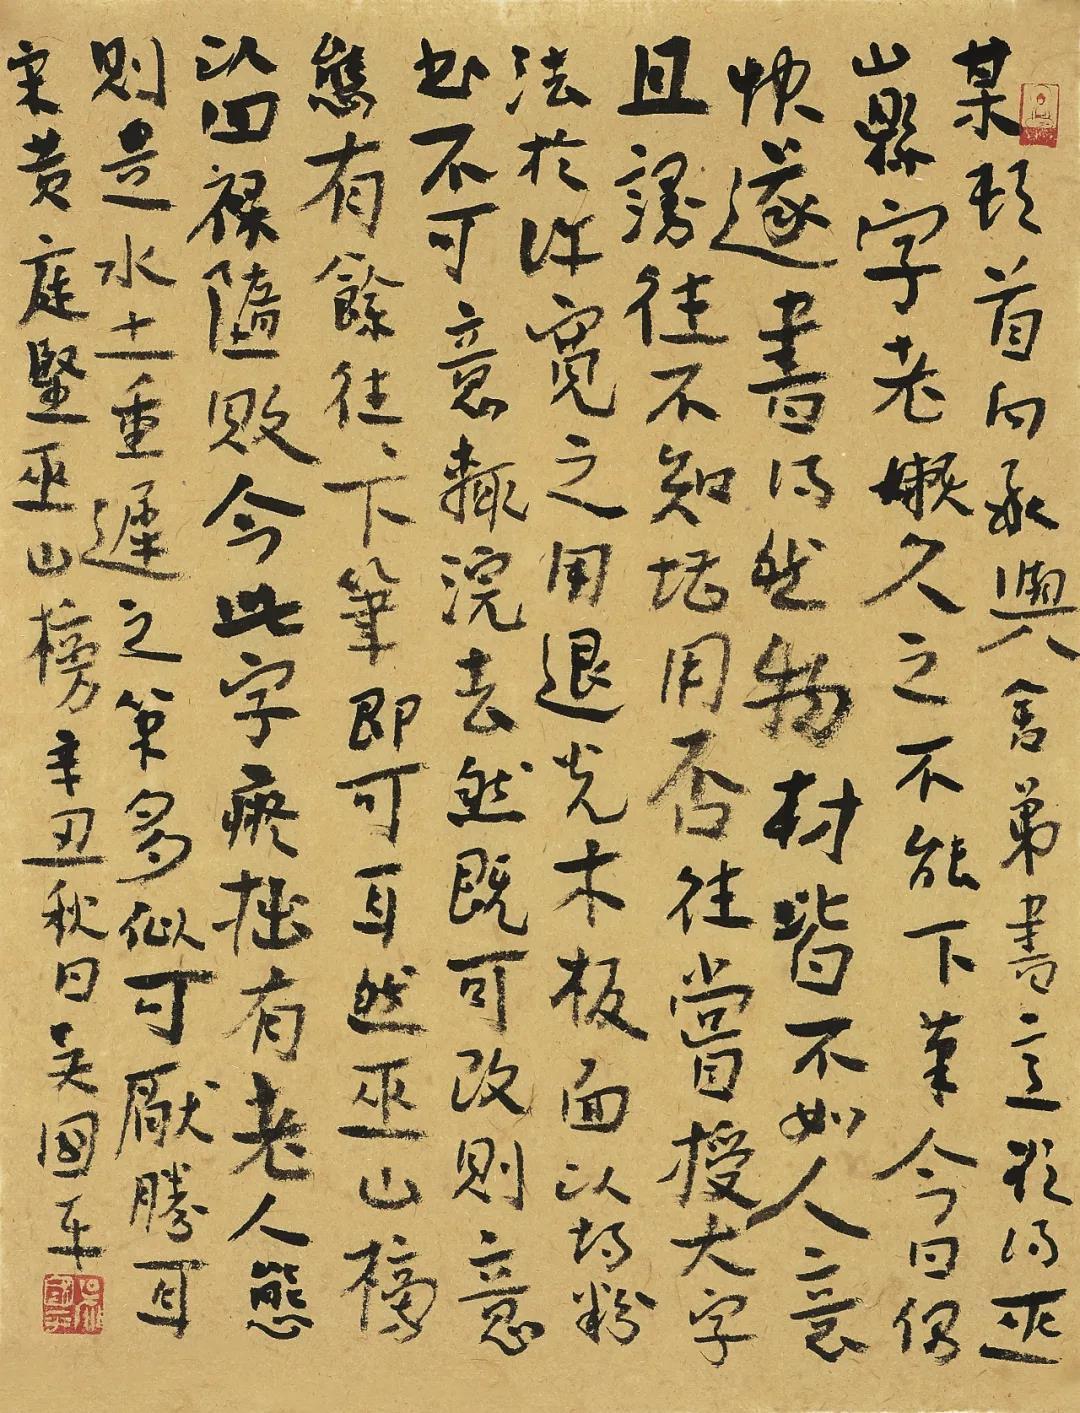 某頓首向承與舍弟書意欲得巫
山縣字老嬾久之不能下筆今日偶
快遂書得然物材皆不如人意
且謾往不知堪用否往當授大字
法於許寬之用退光木板面以胡粉
書不可意輒浣去然既可改則意
態有餘往下筆即可耳然巫山榜
以四襟隨敗今此字疲拙有老人態
則是水土重遲之策多似可厭勝耳
宋黄庭堅巫山榜 辛丑秋日吴國平